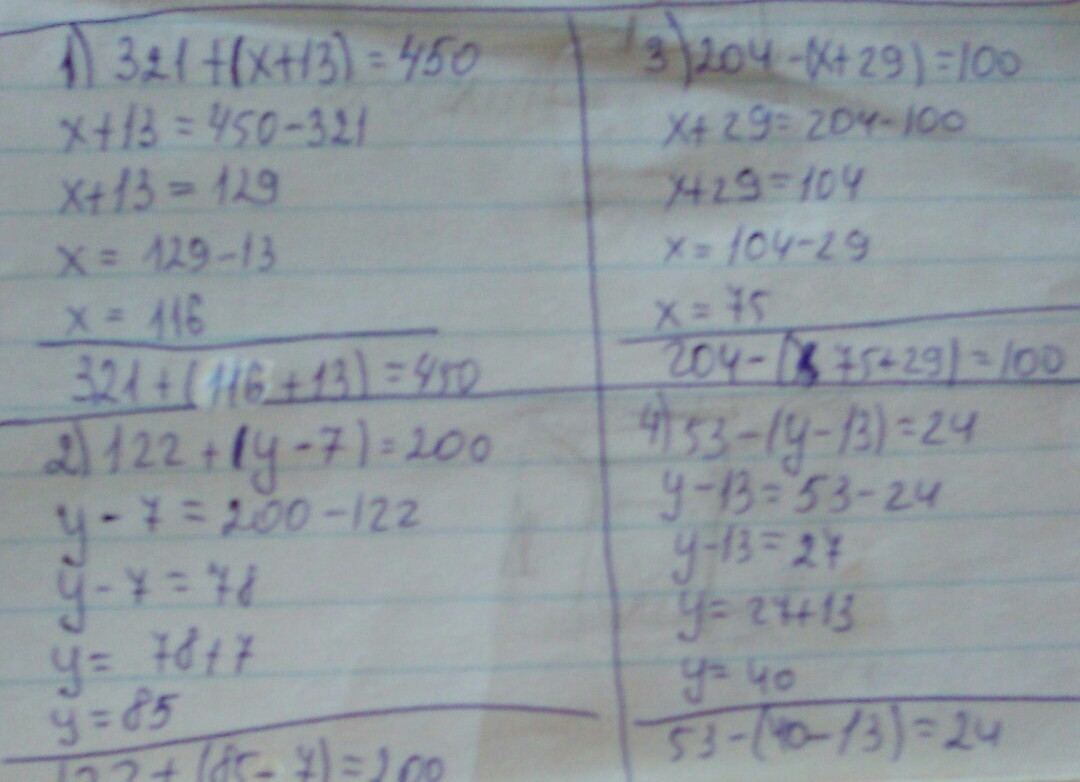 1) 321+(x+13)=450
x+13=450-321
x+13=129
x=129-13
x=116
321+(116+13)=450
2) 122+(y-7)=200
y-7=200-122
y-7=78
y=78+7
y=85
122+(85-7)=200
3) 204-(x+29)=100
x+29=204-100
x+29=104
x=104-29
x=75
204-(75+29)=100
4) 53-(y-13)=24
y-13=53-24
y-13=27
y=27+13
y=40
53-(40-13)=24